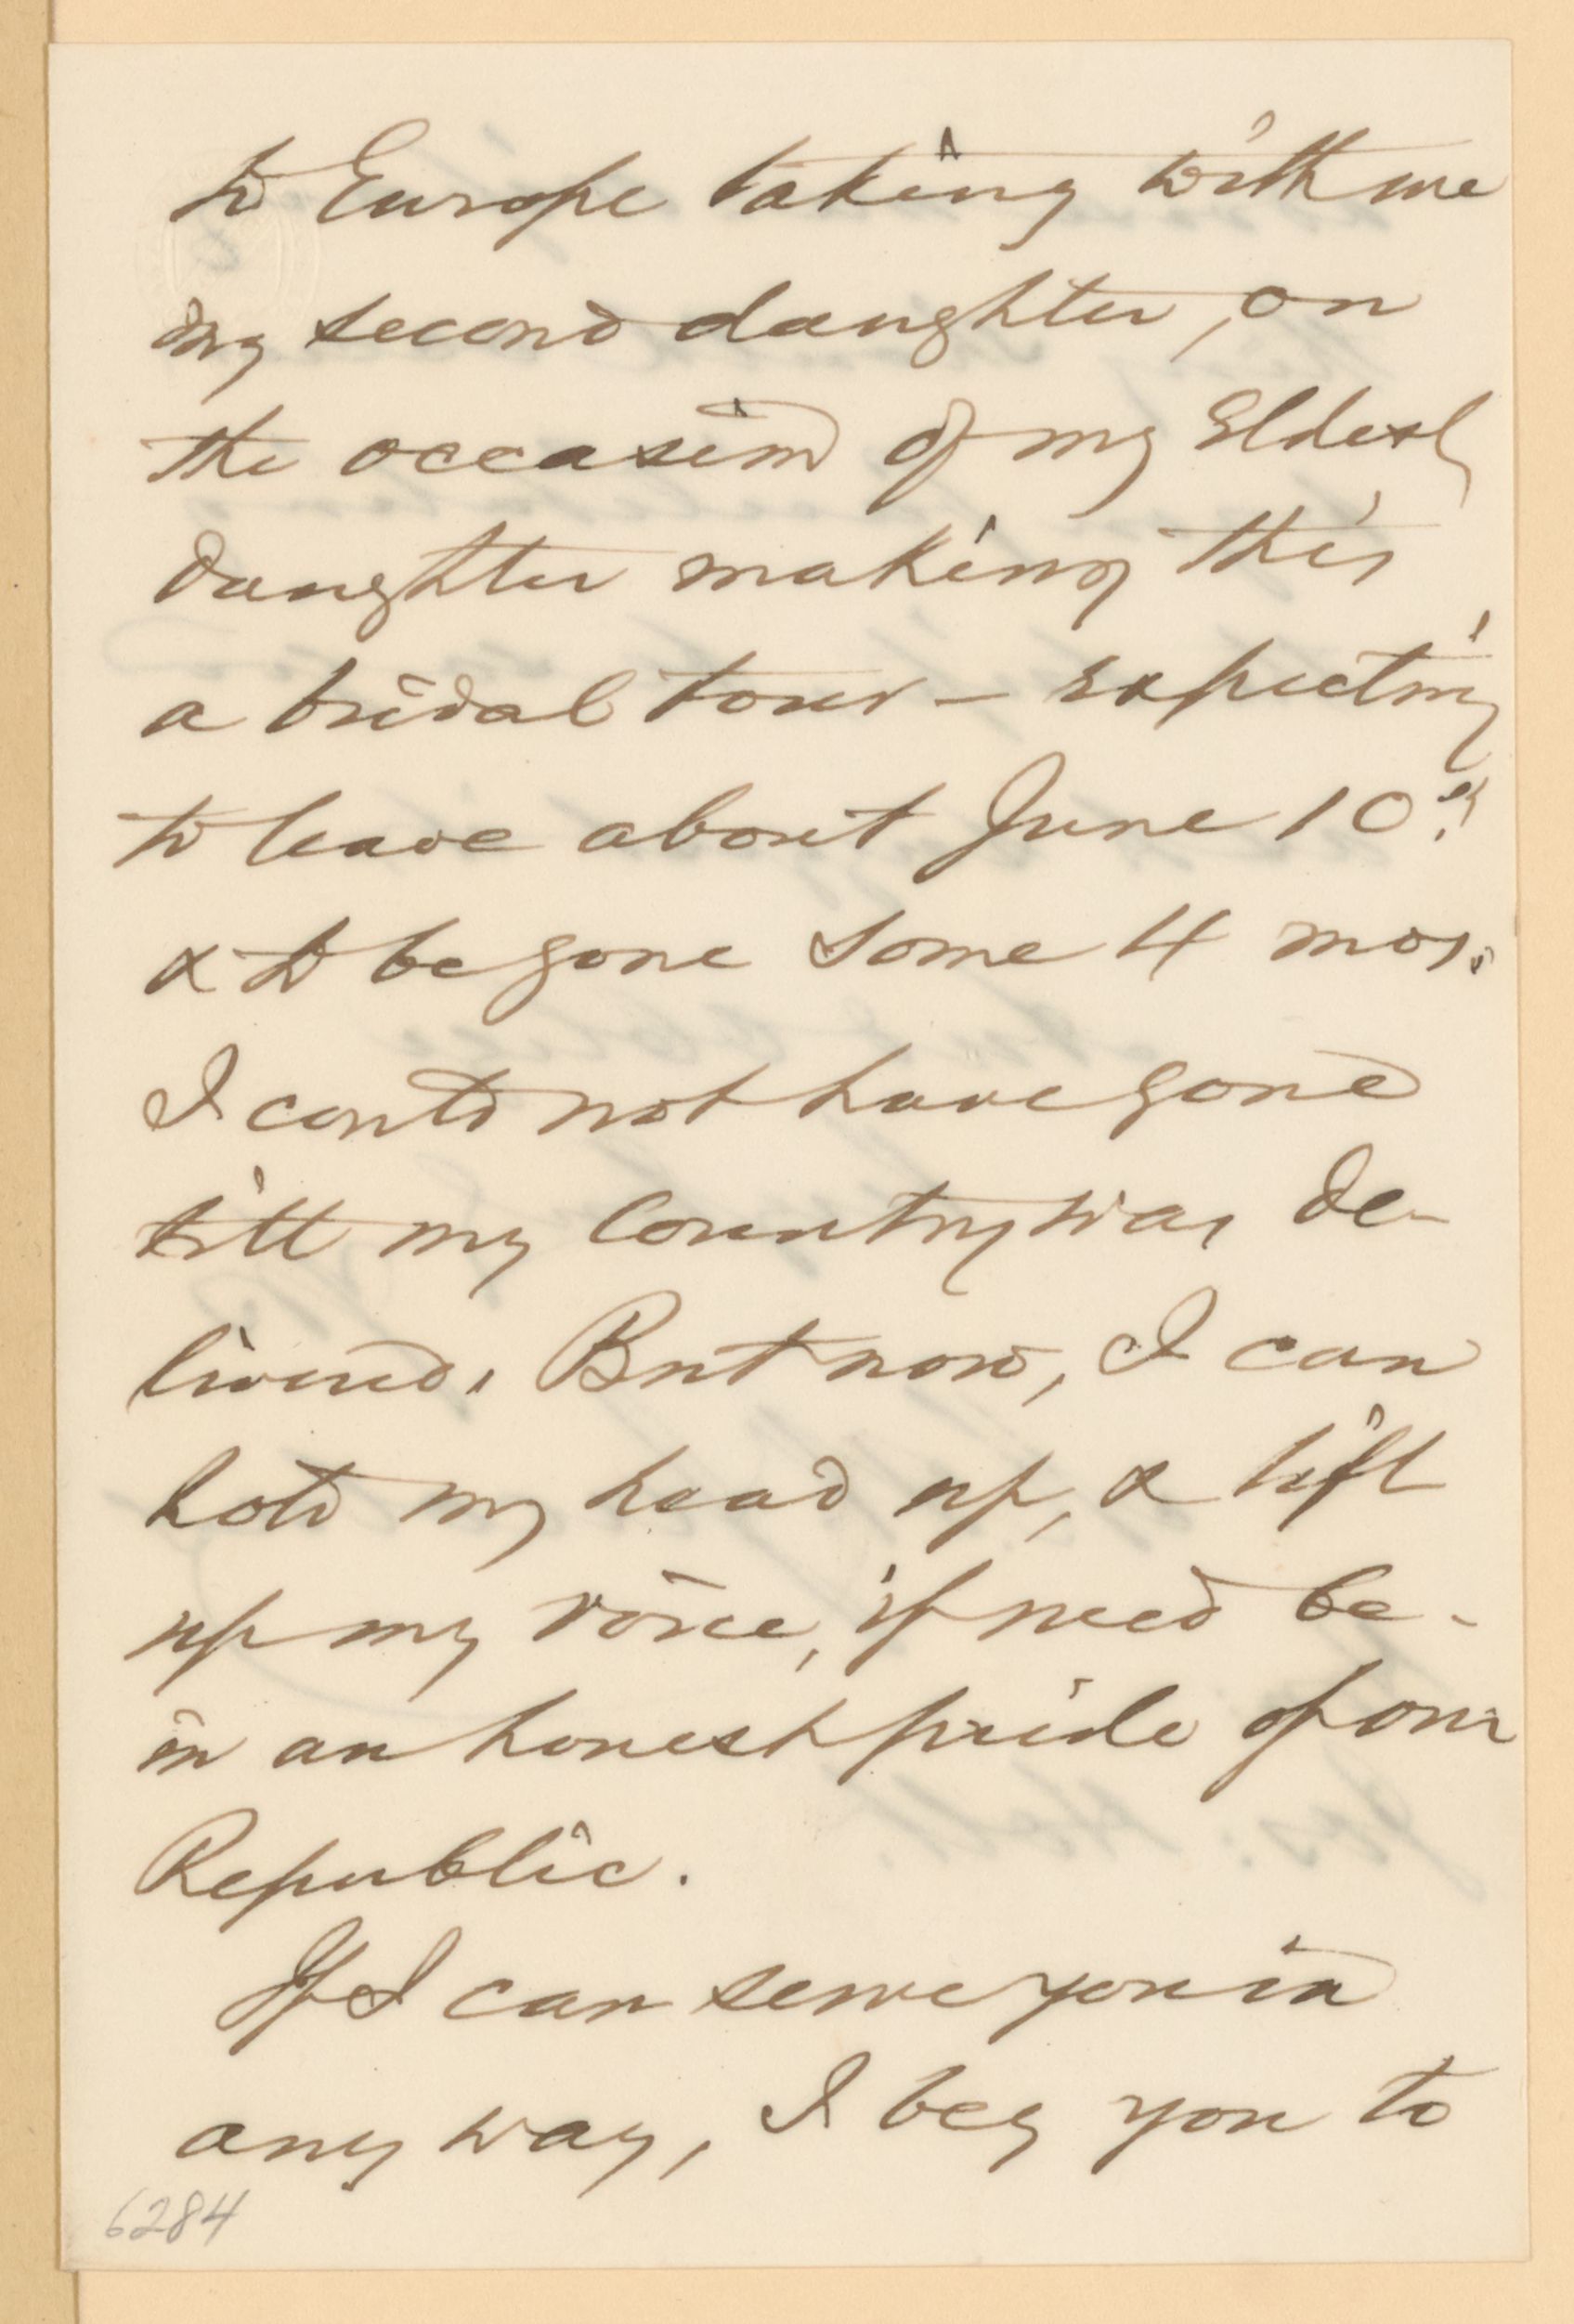 to Europe taking with me
my second daughter, on
the occasion of my Eldest
daughter making this
a bridal tour - expecting
to leave about June 10th
& to be gone some 4 mos.
I could not have gone
till my Country was de-
livered. But now, I can
hold my head up, & lift
up my voice, if need be -
in an honest pride of our
Republic.
If I can serve you in
any way, I beg you to
6284